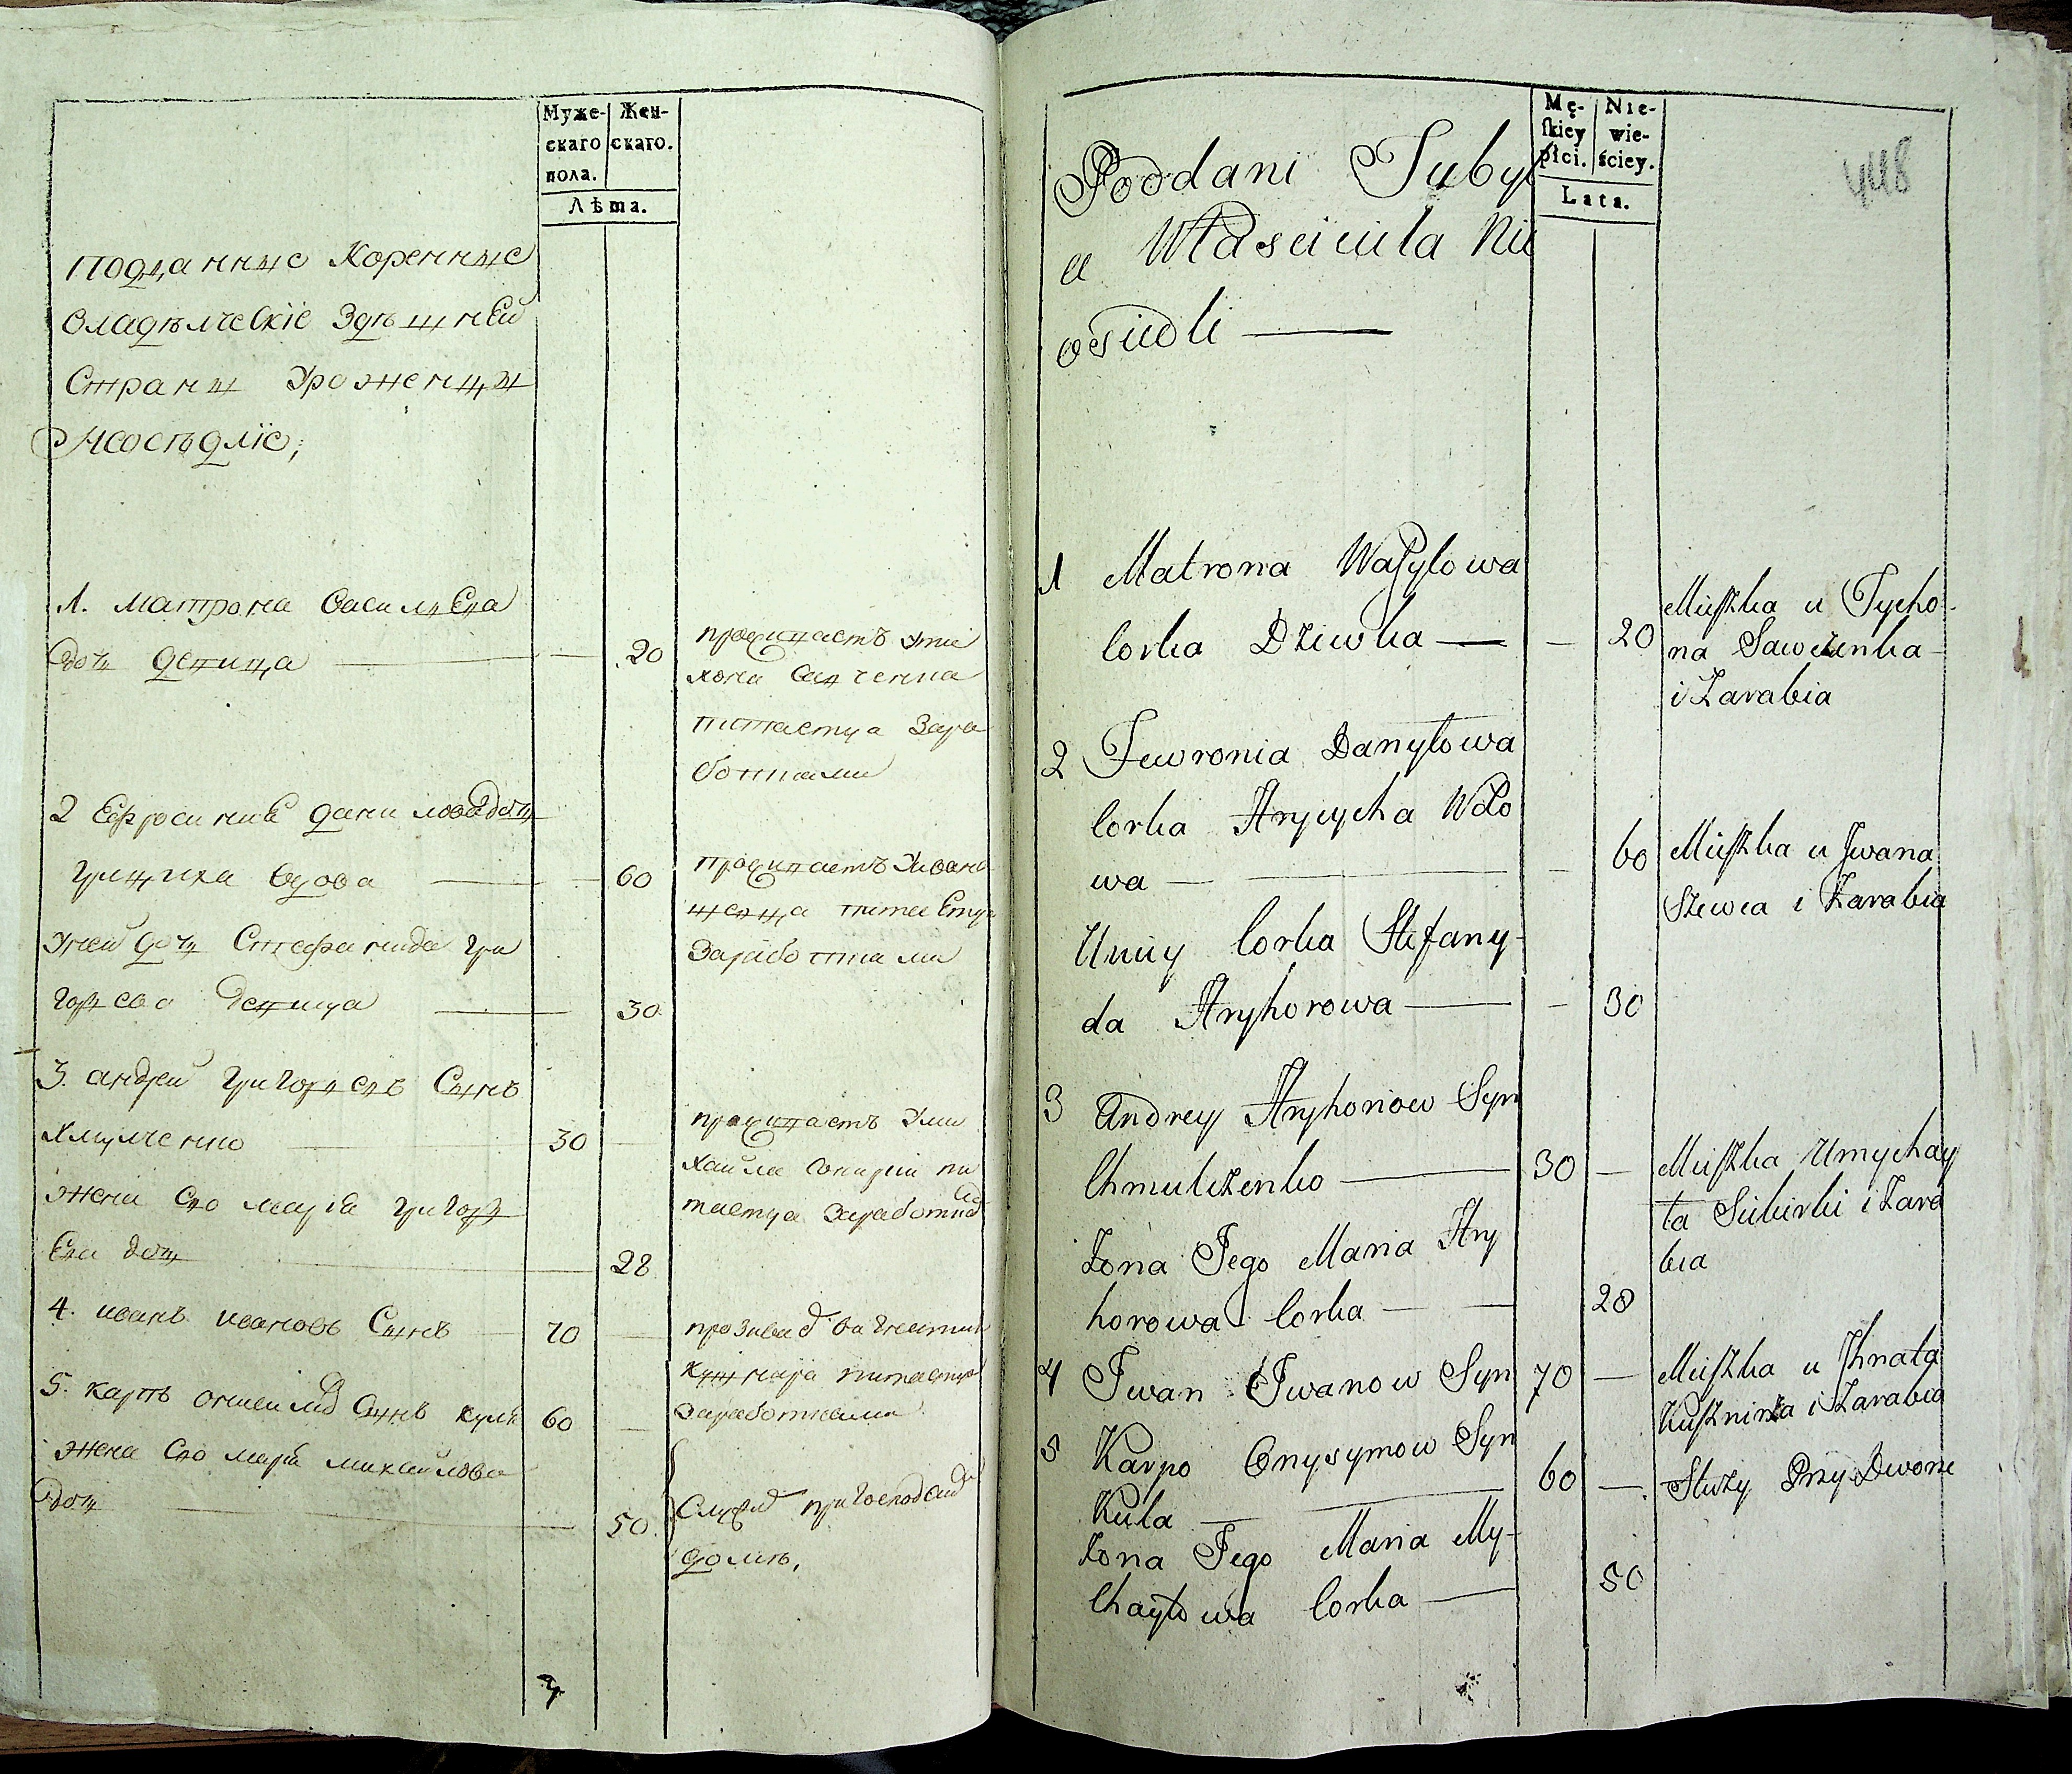 Муже-
скаго
пола.
Жен-
скаго.
Лѣта.
подданные Коренные
владѣлческіе Здѣшней
Страны Уроженцы
Неосѣдліе;
1. матрона василıева
дочı девица — — 20
проживаетъ у ти
хона савченка
питаетца зара
ботками
2 Ефросиния данилова дочı
грициха вдова — — 60
проживаетъ у ивана
шевца питаетца
Заработками
у ней дочı Стефанида гри
горıева девица — 30
3. андрей григорıевъ Сынъ
Хмулченко — 30 —
проживаетъ у ми
хайла пи
таетца заработка
жена его марıя григорı
ева дочı — 28
4. иванъ ивановъ Сынъ — 70 —
у гната
кушнира питаетца
заработками
5. карпъ Сынъ куля 60 —
жена его марıя михайлова
дочı — 50.
Служ при господском
домѣ,
Mę-
skiey
płci.
Nie-
wie-
ściey.
Lata.
448
Poddani Tubyl
a Własciciela Nie
osiedli —
1 Matrona Wasylowa
Corka Dziewka — — 20
Mieszka u Tycho-
na Sawczenka
i Zarabia
2 Fewronia Danyłowa
Corka Hrycycha Wdo
wa — — 60
Mieszka u Jwana
Szewca i Zarabia
U niey Corka Stefany-
da Hryhorowa — — 30
3 Andrey Hryhoriow Syn
Chmulczenko — 30 —
Mieszka u Mychay
ła i Zara
bia
Zona Jego Maria Hry
horowa Corka — — 28
4 Jwan Jwanow Syn 70 —
Mieszka u Jhnata
Kusznirza i Zarabia
5 Karpo Onysymow Syn
Kula — 60 —
Służy Przy Dworze
Zona Jego Maria My-
chayłowa Corka — 50